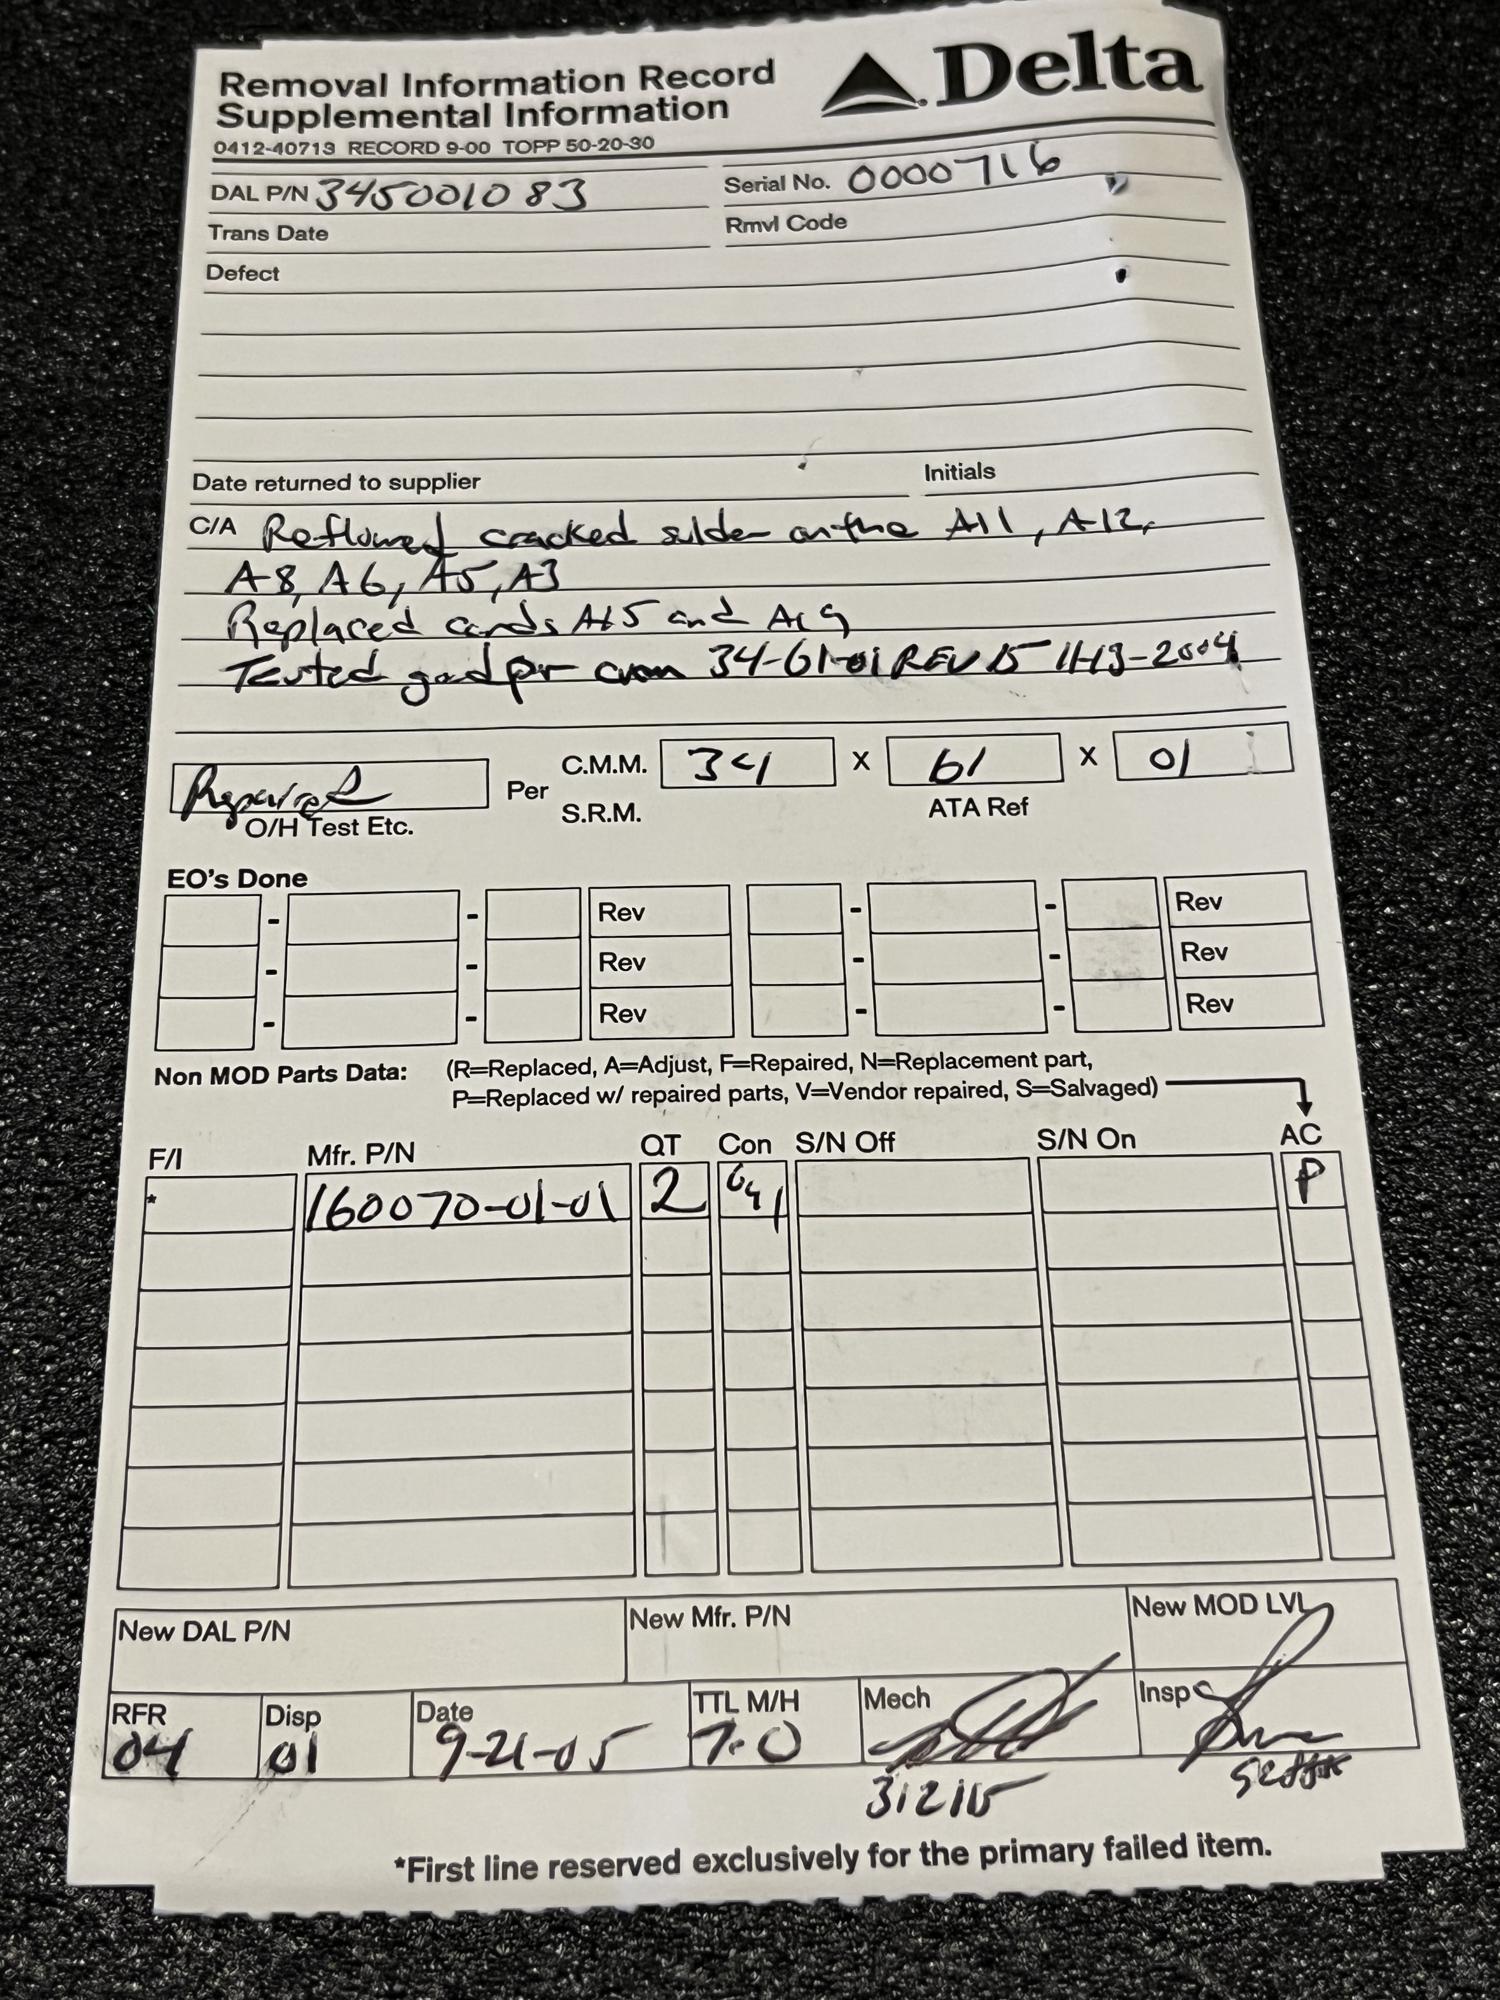 Removal Information Record
Supplemental Information
Delta
0412-40713 RECORD 9-00 TOPP 50-20-30
DAL P/N 345001083 Serial No. 0000716
Trans Date Rmvl Code
Defect
Date returned to supplier Initials
C/A Reflowed cracked solder on the A11, A12,
A8, A6, A5, A3
Replaced cards A15 and A19
Tested good per cmm 34-61-01 REV 15 11-13-2004
Repaired Per C.M.M. 34 x 61 x 01
O/H Test Etc. S.R.M. ATA Ref
EO's Done
- - Rev - - Rev
- - Rev - - Rev
- - Rev - - Rev
Non MOD Parts Data: (R=Replaced, A=Adjust, F=Repaired, N=Replacement part,
P=Replaced w/ repaired parts, V=Vendor repaired, S=Salvaged)
F/I Mfr. P/N QT Con S/N Off S/N On AC
* 160070-01-01 2 P
New DAL P/N New Mfr. P/N New MOD LVL
RFR Disp Date TTL M/H Mech Insp
04 01 9-21-05 7.0
*First line reserved exclusively for the primary failed item.